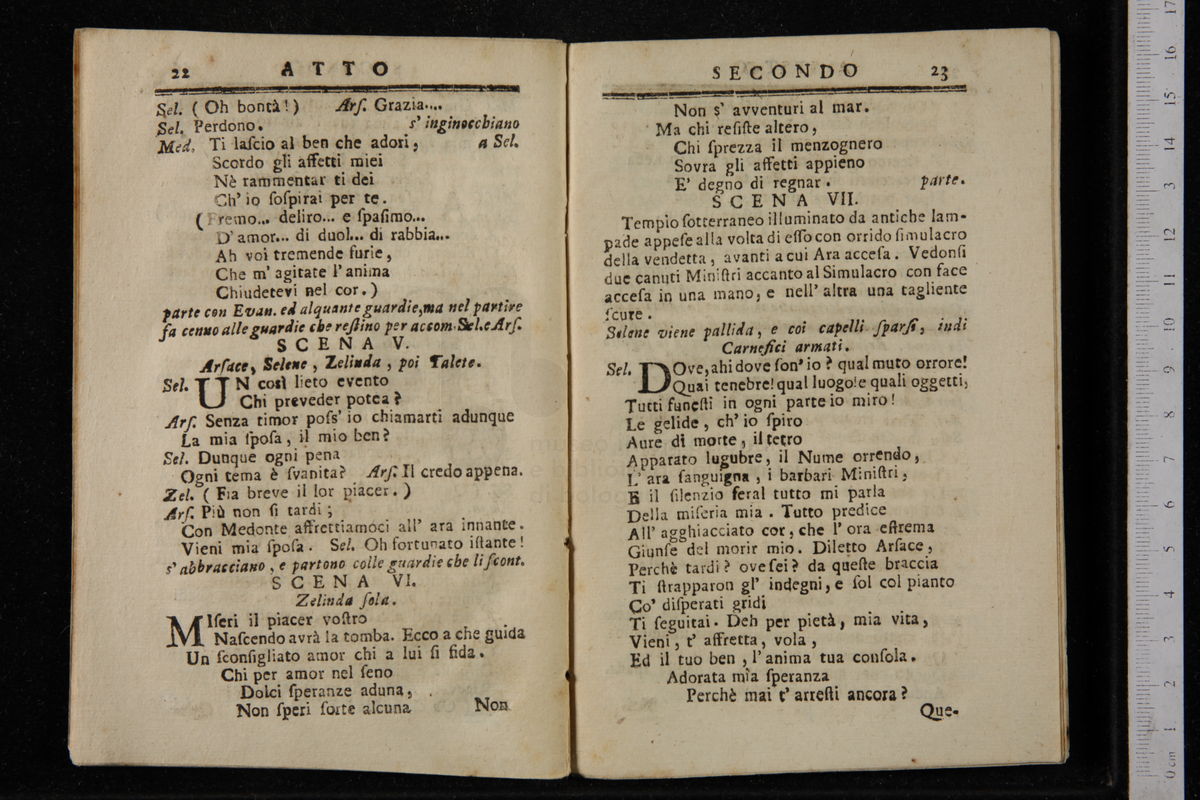 22 ATTO
Sel. ( Oh bontà! ) Arſ. Grazia....
Sel. Perdono. s' inginocchiano
Med. Ti laſcio al ben che adori, a Sel.
Scordo gli affetti miei
Nè rammentar ti dei
Ch' io ſoſpirai per te.
( Fremo... deliro... e ſpaſimo...
D' amor... di duol... di rabbia...
Ah voi tremende furie,
Che m' agitate l' anima
Chiudetevi nel cor. )
parte con Evan. ed alquante guardie, ma nel partire
fa cenno alle guardie che reſtino per accom. Sel. e Arſ.
SCENA V.
Arſace, Selene, Zelinda, poi Talete.
Sel. UN così lieto evento
Chi preveder potea?
Arſ. Senza timor poſs' io chiamarti adunque
La mia ſpoſa, il mio ben?
Sel. Dunque ogni pena
Ogni tema è ſvanita? Arſ. Il credo appena.
Zel. ( Fia breve il lor piacer. )
Arſ. Più non ſi tardi;
Con Medonte affrettiamoci all' ara innante.
Vieni mia ſpoſa. Sel. Oh fortunato iſtante!
s' abbracciano, e partono colle guardie che li ſcont.
SCENA VI.
Zelinda ſola.
MIſeri il piacer voſtro
Naſcendo avrà la tomba. Ecco a che guida
Un ſconſigliato amor chi a lui ſi fida.
Chi per amor nel ſeno
Dolci ſperanze aduna,
Non ſperi ſorte alcuna
Non
SECONDO 23
Non s' avventuri al mar.
Ma chi reſiſte altero,
Chi ſprezza il menzognero
Sovra gli affetti appieno
E' degno di regnar. parte.
SCENA VII.
Tempio ſotterraneo illuminato da antiche lam-
pade appeſe alla volta di eſſo con orrido ſimulacro
della vendetta, avanti a cui Ara acceſa. Vedonſi
due canuti Miniſtri accanto al Simulacro con face
acceſa in una mano, e nell' altra una tagliente
ſcure.
Selene viene pallida, e coi capelli ſparſi, indi
Carnefici armati.
Sel. DOve, ahi dove ſon' io? qual muto orrore!
Quai tenebre! qual luogo! e quali oggetti,
Tutti funeſti in ogni parte io miro!
Le gelide, ch' io ſpiro
Aure di morte, il tetro
Apparato lugubre, il Nume orrendo,
L' ara ſanguigna, i barbari Miniſtri,
E il ſilenzio feral tutto mi parla
Della miſeria mia. Tutto predice
All' agghiacciato cor, che l' ora eſtrema
Giunſe del morir mio. Diletto Arſace,
Perchè tardi? ove ſei? da queſte braccia
Ti ſtrapparon gl' indegni, e ſol col pianto
Co' diſperati gridi
Ti ſeguitai. Deh per pietà, mia vita,
Vieni, t' affretta, vola,
Ed il tuo ben, l' anima tua conſola.
Adorata mia ſperanza
Perchè mai t' arreſti ancora?
Que-